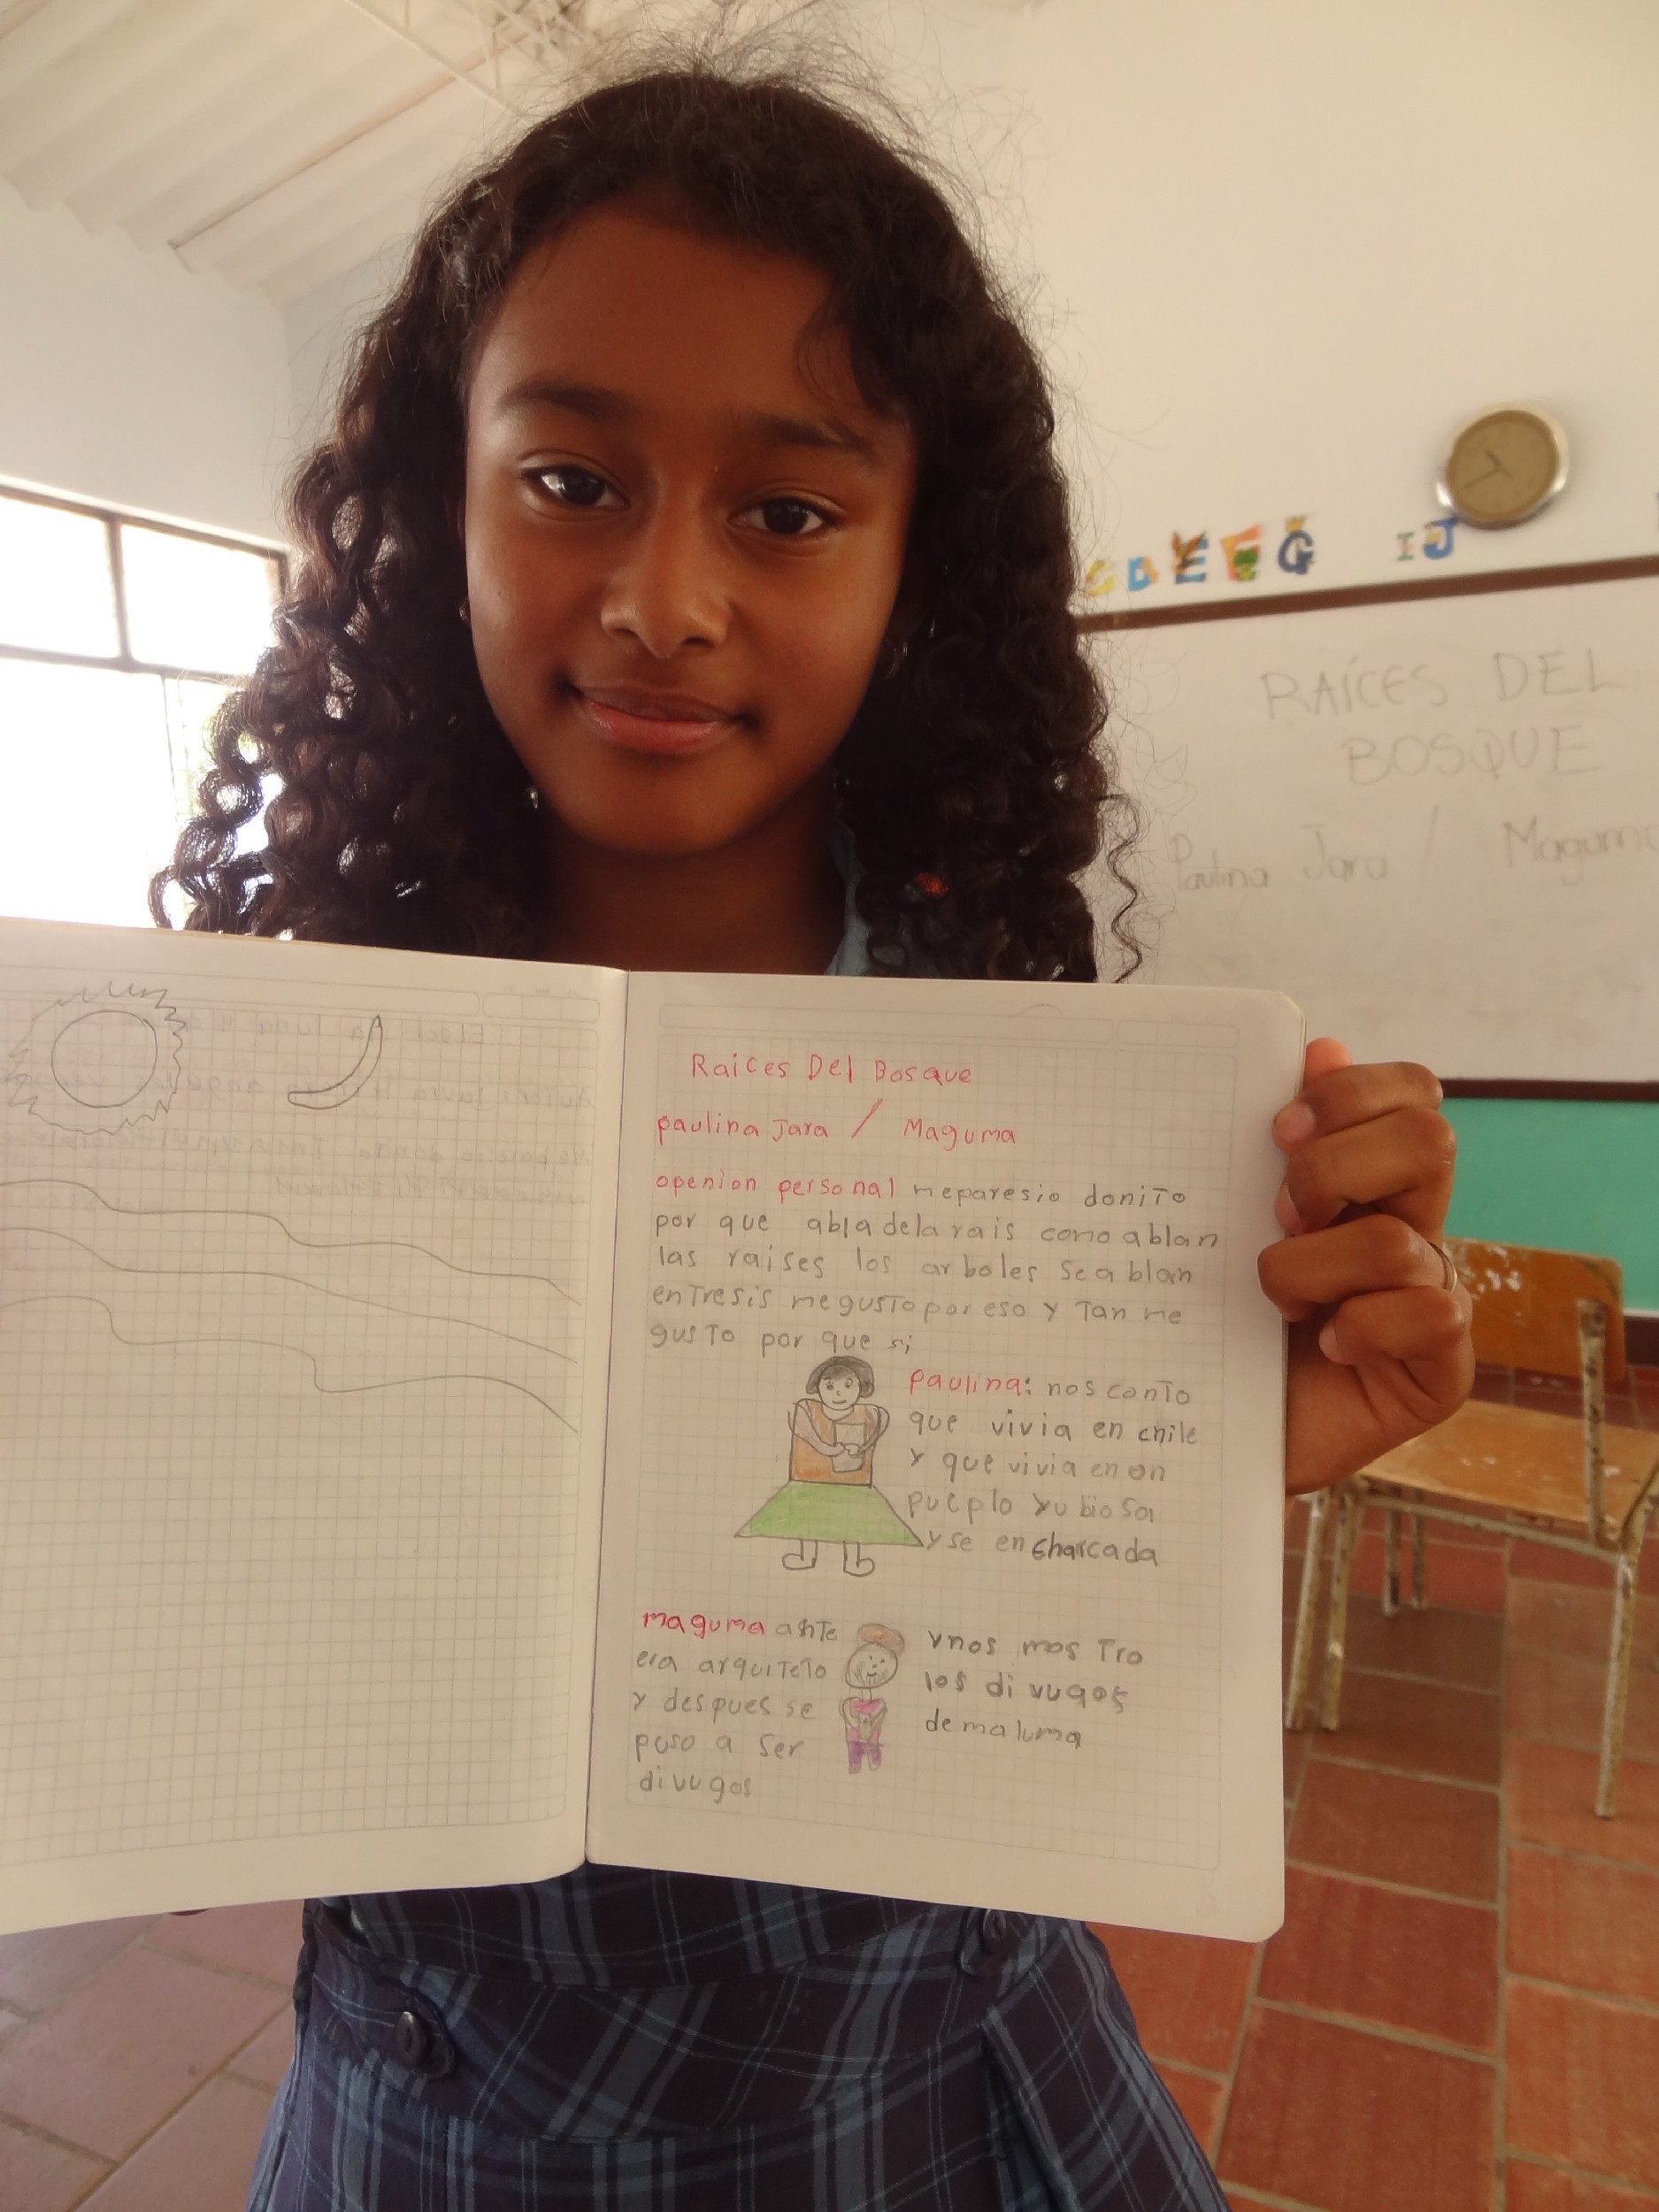 C D E F G I J
RAÍCES DEL
BOSQUE
Paulina Jara / Maguma
Raices Del Bosque
paulina Jara / Maguma
openion personal meparesio donito
por que abla delarais como ablan
las raises los arboles se ablan
entresis megusto por eso y Tan me
gusto por que si
paulina: nos conto
que vivia en chile
y que vivia en on
pueplo
y se encharcada
maguma ante
era arquiteto
y despues se
puso a ser
divugos
ynos mos Tro
los divugos
de maluma